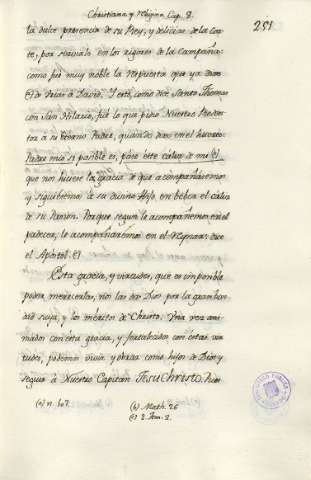 Christiana y Religiosa Cap. 8.
251
la dulce presencia de su Rey, y delicias de la Cor-
te, por servirle en los rigores de la Campaña:
como fue muy noble la respuesta que ya dimos
de Urias a David. Y esto, como dice Santo Thomas
con San Hilario, fue lo que pidio Nuestro Reden-
tor a su Eterno Padre, quando dixo en el huerto:
Padre mio si posible es, pase este caliz de mi (b)
que nos hiciese la gracia de que acompañaremos
y siguieremos a su divino Hijo, en beber el caliz
de su Passion. Porque segun le acompañaremos en el
padecer, le acompañaremos en el Reynar: dice
el Apostol. (c)
Esta gracia, y virtudes, que es imposible
poder merecerlas, nos las da Dios por la gran bon-
dad suya, y los meritos de Christo. Una vez ani-
mados con esta gracia, y fortalecidos con estas vir-
tudes, podemos vivir y obrar como hijos de Dios y
seguir a Nuestro Capitan Jesu Christo. Pues
(a) n. 607.
(b) Math. 26
(c) 2. Tim. 2.